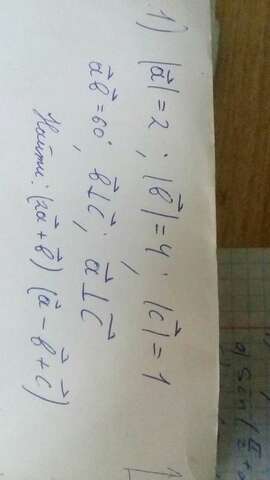 1) |a⃗|=2 ; |b⃗|=4 ; |c⃗|=1
a⃗b⃗=60°; b⃗⊥c⃗; a⃗⊥c⃗
Найти: (2a⃗+b⃗) (a⃗-b⃗+c⃗)